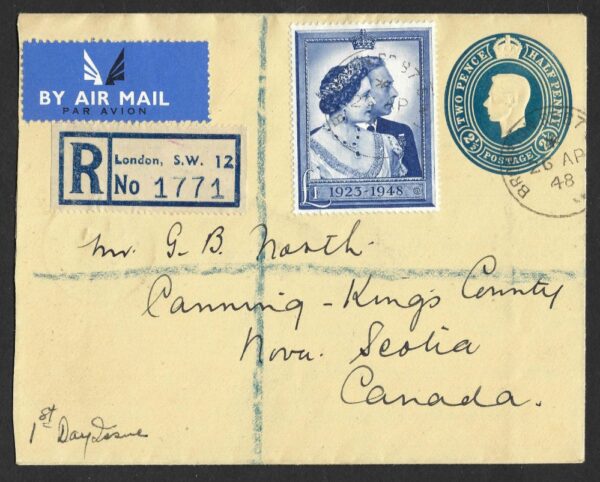 BY AIR MAIL
PAR AVION
R
London, S.W. 12
No 1771
£1 1923-1948
TWO PENCE HALF PENNY
2½ POSTAGE 2½
26 AP
48
Mr. G. B. North.
Canning - King's County
Nova. Scotia
Canada.
1st Day Issue